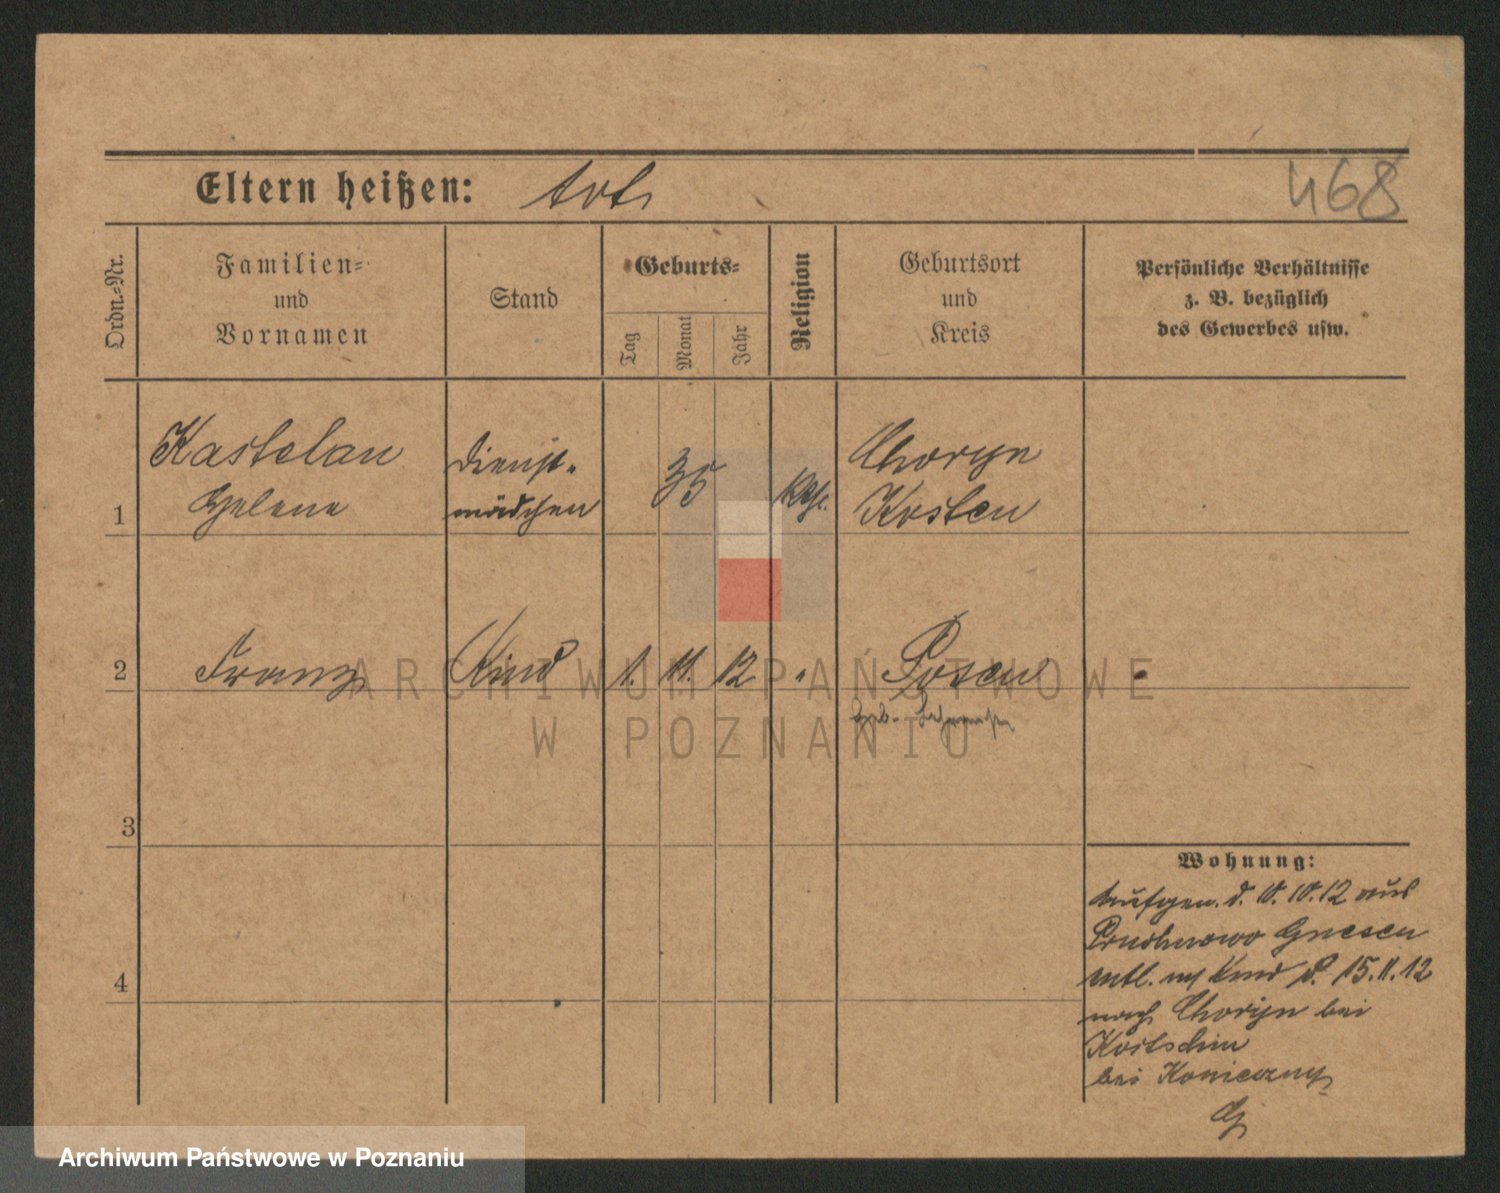 Eltern heißen: tot.
468
Ordn.-Nr.
Familien-
und
Vornamen
Stand
Geburts-
Tag
Monat
Jahr
Religion
Geburtsort
und
Kreis
Persönliche Verhältnisse
z. B. bezüglich
des Gewerbes usw.
1
Kastelan
Helene
Dienst-
mädchen
35
kath.
Choryn
Kosten
2
Franz
Kind
1. 11. 12
"
Posen
3
4
Wohnung:
Aufgen. d. 10. 10. 12 aus
Gnesen
entl. m Kind d. 15. 11. 12
nach Choryn bei
bei Konieczny
ARCHIWUM PAŃSTWOWE
W POZNANIU
Archiwum Państwowe w Poznaniu